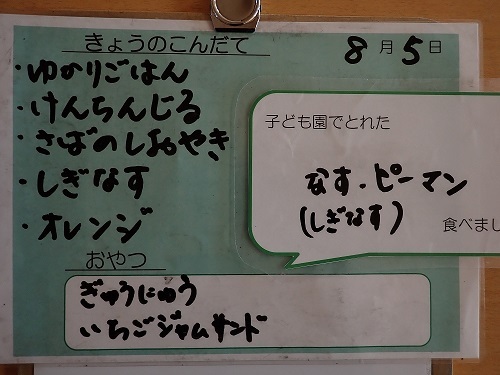 きょうのこんだて
8月5日
・ゆかりごはん
・けんちんじる
・さばのしおやき
・しぎなす
・オレンジ
子ども園でとれた
なす・ピーマン
(しぎなす)
食べまし
おやつ
ぎゅうにゅう
いちごジャムサンド